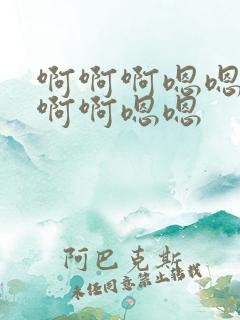 啊啊啊嗯嗯
啊啊嗯嗯
阿巴克斯
未经同意禁止转载